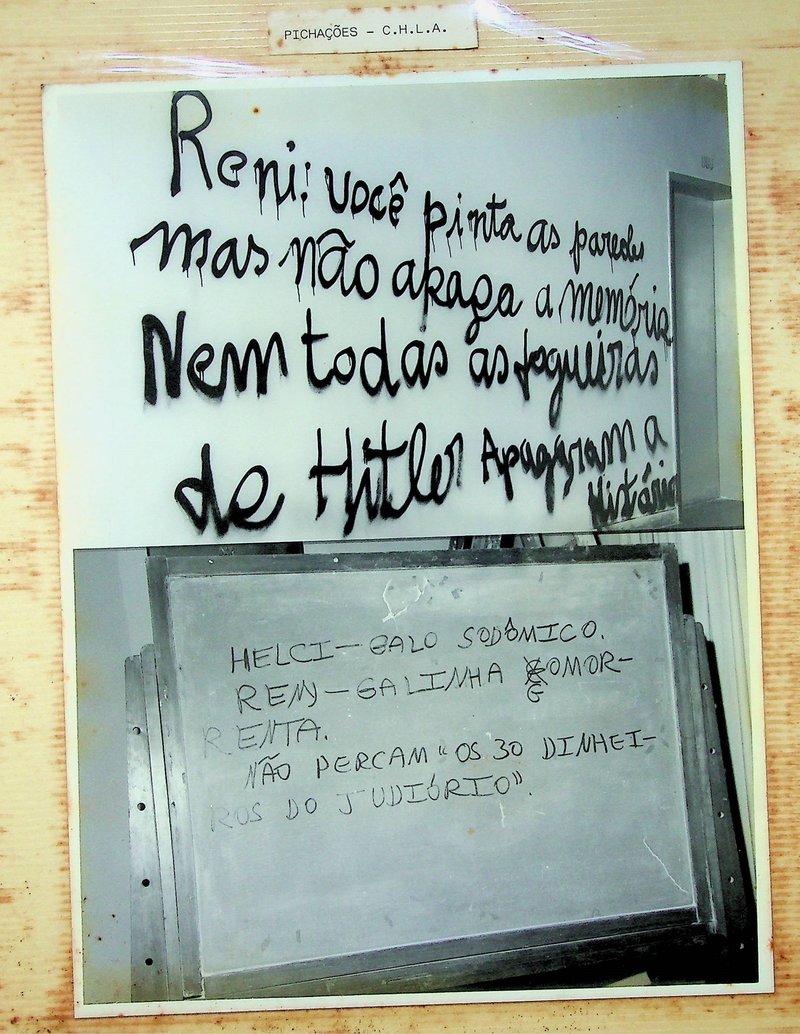 PICHAÇÕES - C.H.L.A.
Reni: você pinta as paredes
mas não apaga a memória
Nem todas as fogueiras
de Hitler Apagaram a
História
HELCI-GALO SODÔMICO.
RENI-GALINHA GOMOR-
RENTA.
NÃO PERCAM "OS 30 DINHEI-
ROS DO JUDIÓRIO".